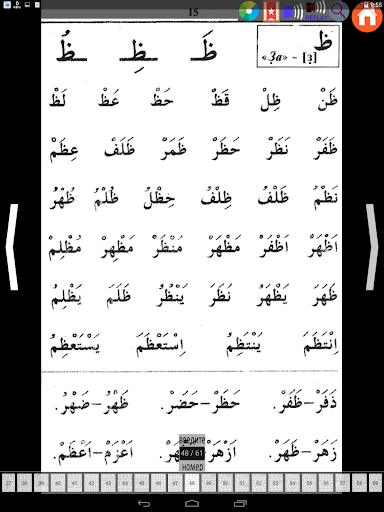 9:55
15
REPLAY
ظ
«З̣а» - [з̣]
ظَ ـظِـ ـظُ
ظَنْ ظِلْ قَظْ حَظْ عَظْ لَظْ
ظَفَرْ نَظَرْ حَظَرْ ظَمَرْ ظَلَفْ عِظَمْ
نَظْمُ ظَلْفُ ظِلْفُ حِظْلُ ظُلْمُ ظُهْرُ
اَظْهَرْ اَظْفَرْ مَظْهَرْ مُنْظَرْ مَظْهِرْ مُظْلِمْ
ظَهَرَ يَظْهَرُ نَظَرَ يَنْظُرُ ظَلَمَ يَظْلِمُ
اِنْتَظَمَ يَنْتَظِمُ اِسْتَعْظَمَ يَسْتَعْظِمُ
ذَفَرْ–ظَفَرْ. حَظَرْ–حَضَرْ. ظَهْرُ–ضَهْرُ.
زَهَرْ–ظَهَرْ. اَزْهَرْ اَعْزَمْ–اَعْظَمْ.
введите
48 / 61
номер
37 38 39 40 41 42 43 44 45 46 47 48 49 50 51 52 53 54 55 56 57 58 59